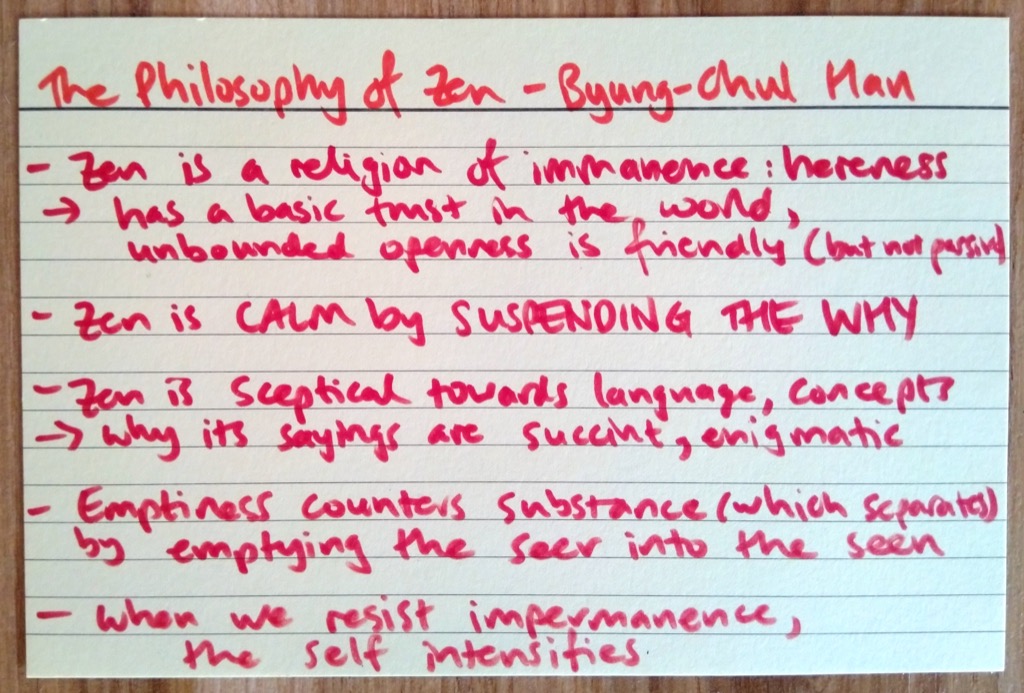 The Philosophy of Zen - Byung-Chul Han
- Zen is a religion of immanence: hereness
→ has a basic trust in the world,
unbounded openness is friendly (but not passive)
- Zen is CALM by SUSPENDING THE WHY
- Zen is sceptical towards language, concepts
→ why its sayings are succint, enigmatic
- Emptiness counters substance (which separates)
by emptying the seer into the seen
- when we resist impermanence,
the self intensifies